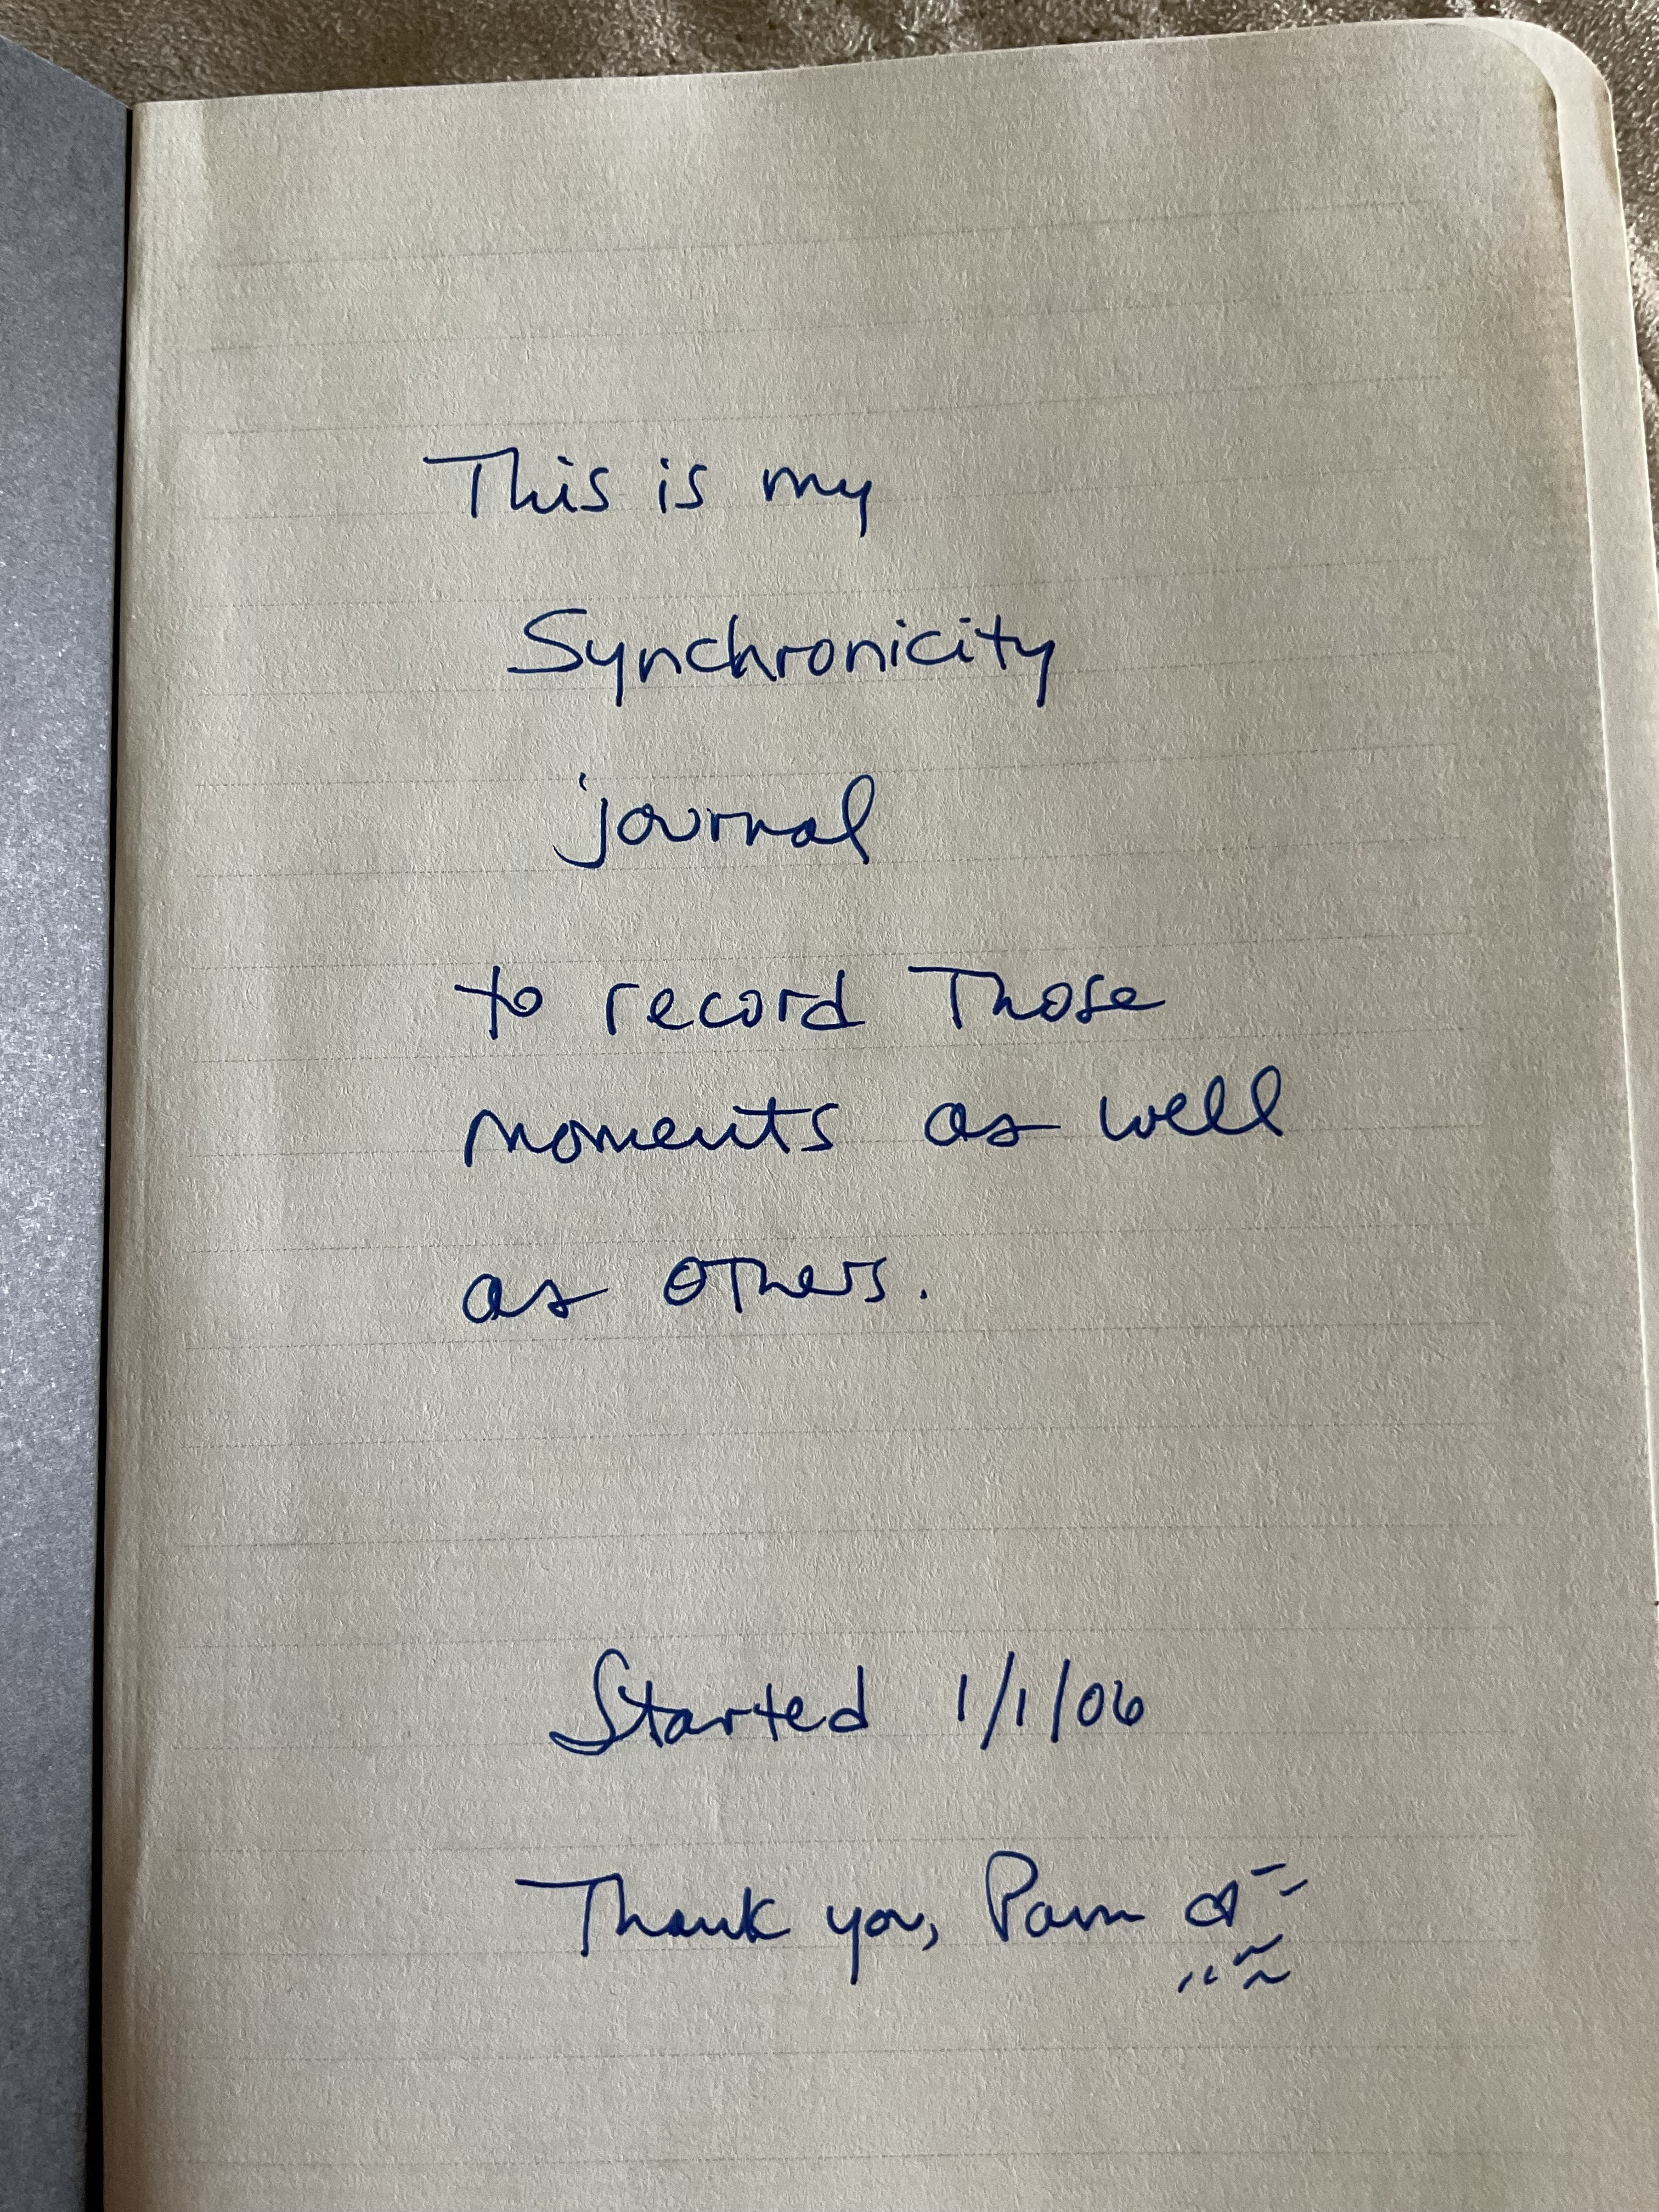 This is my
Synchronicity
journal
to record Those
moments as well
as others.
Started 1/1/06
Thank you, Pam